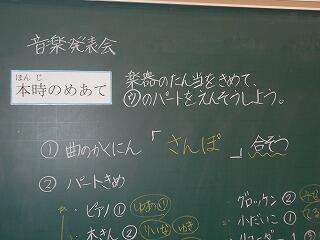 音楽発表会
ほんじ
本時のめあて
楽器のたん当をきめて、
のパートをえんそうしよう。
① 曲のかくにん「さんぽ」合そう
② パートきめ
・ピアノ①
・木きん②
グロッケン②
小だいこ①